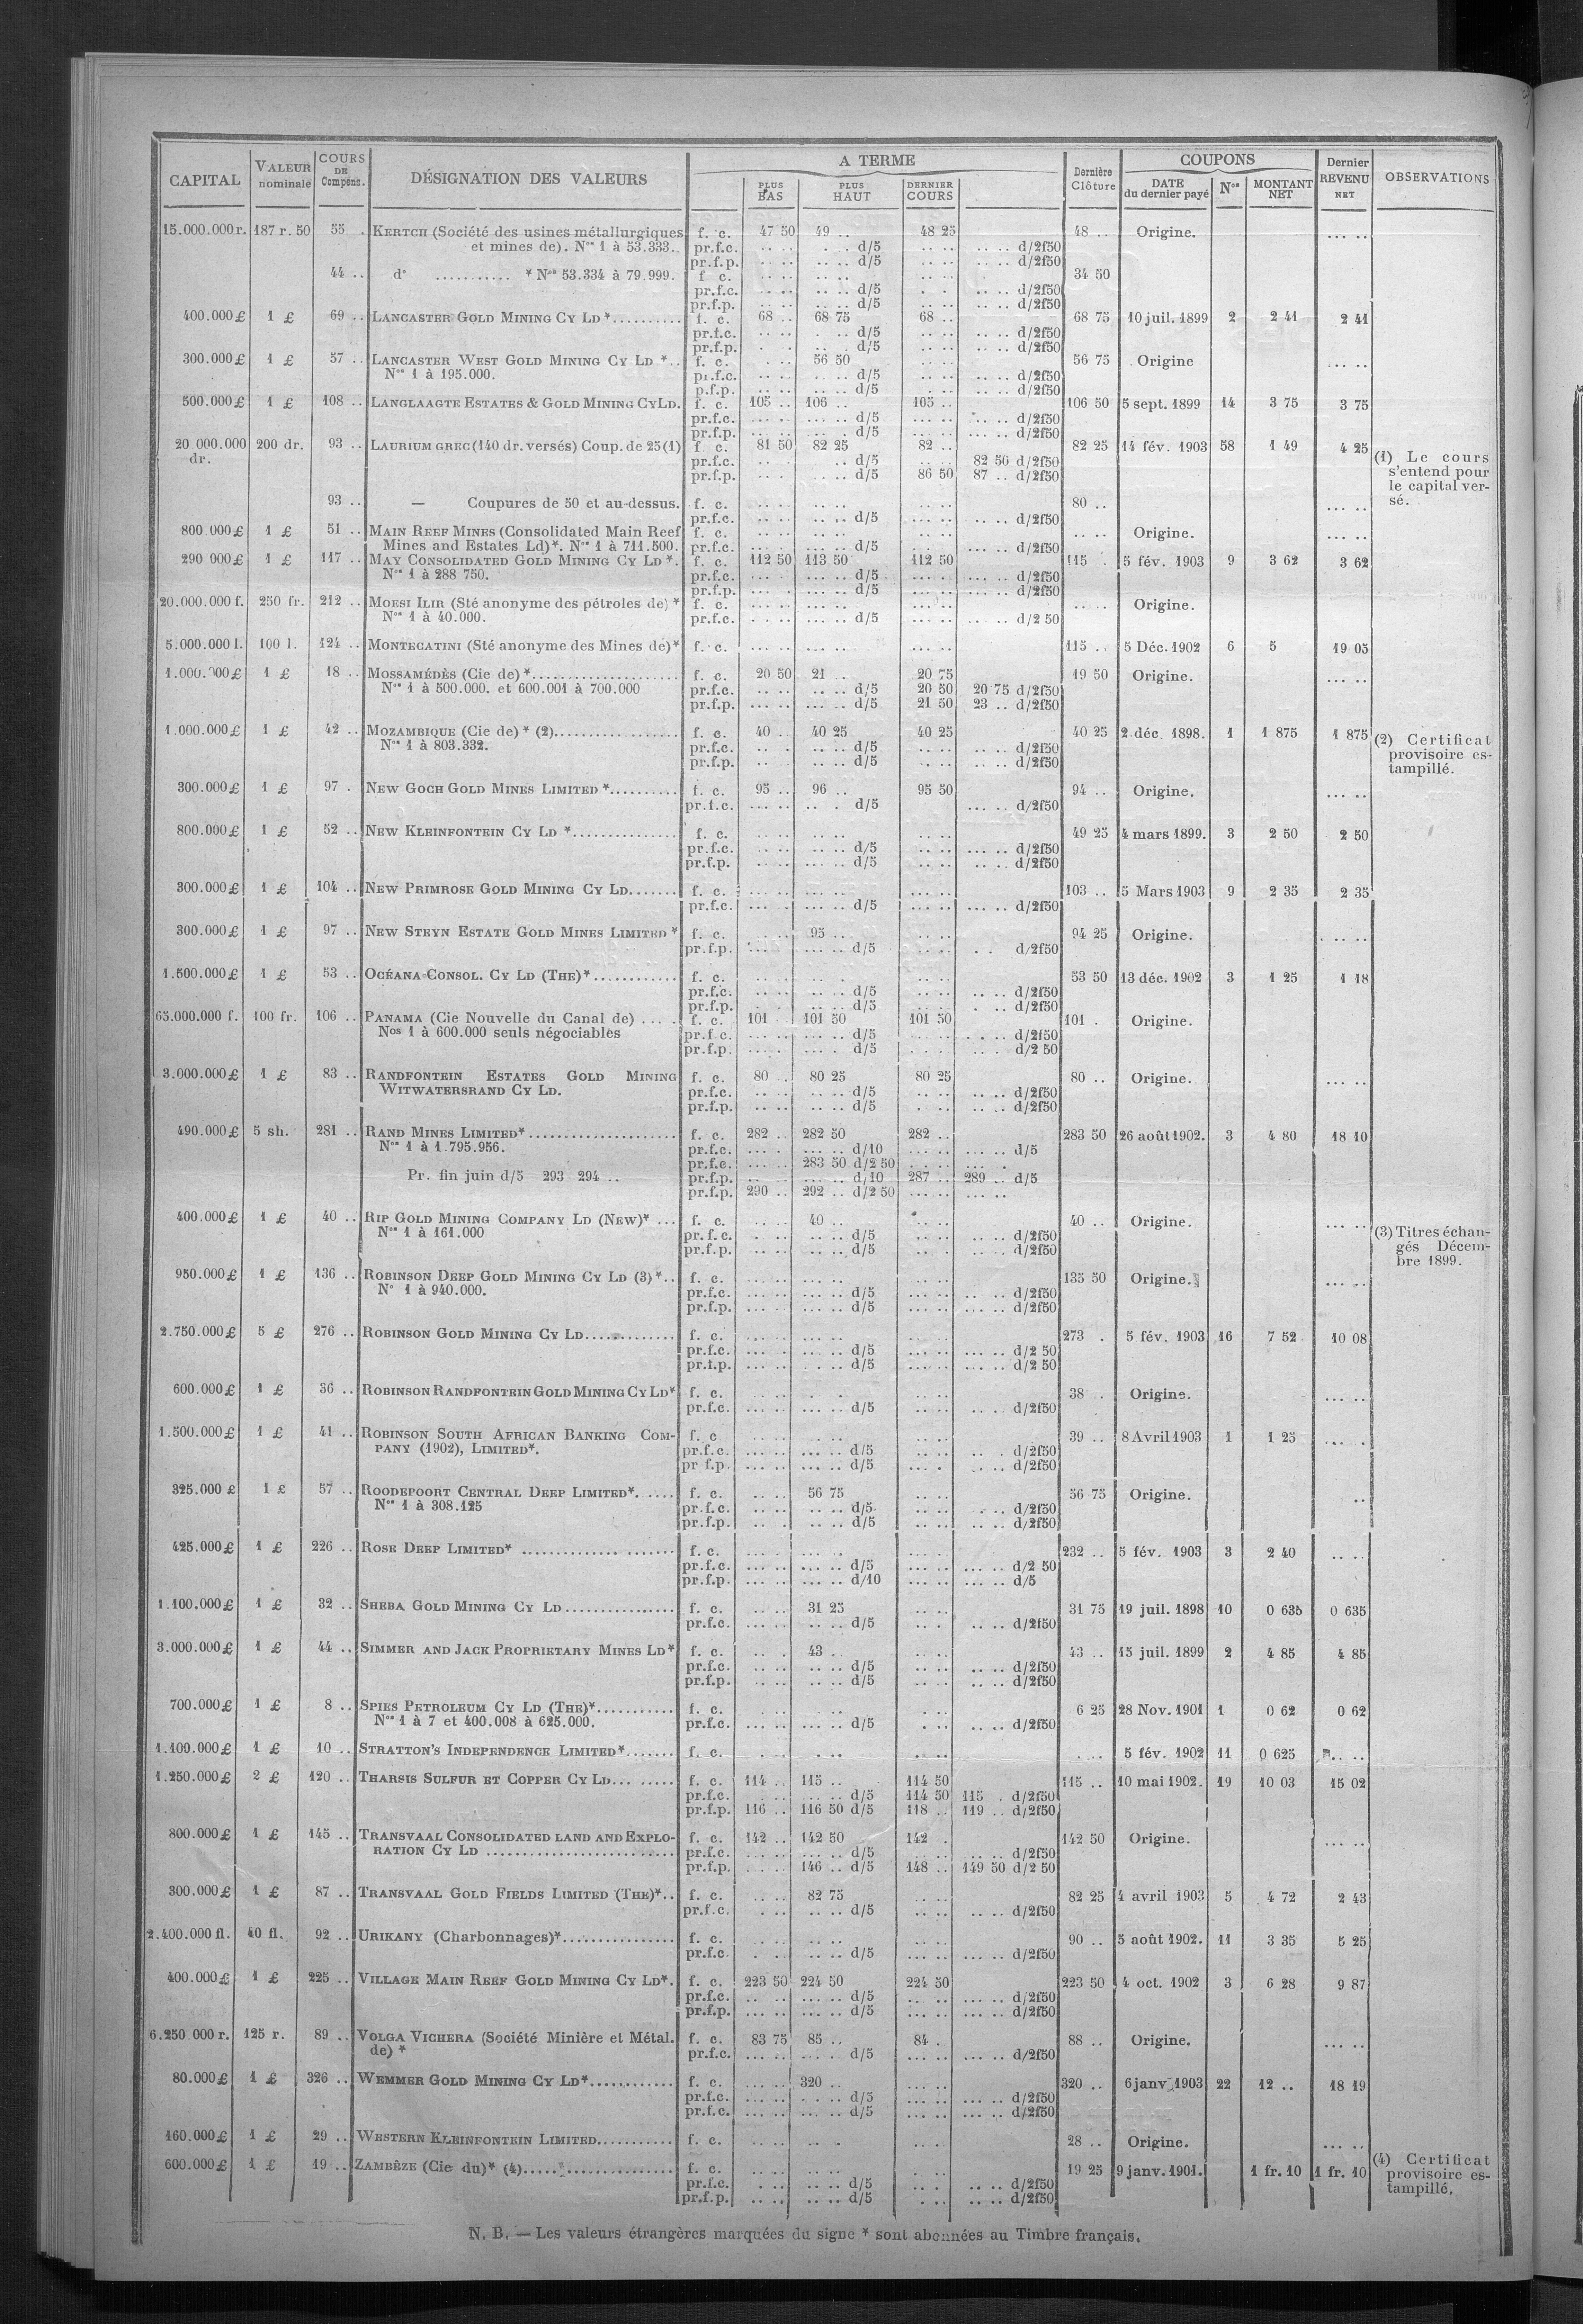 CAPITAL VALEUR nominale COURS DE Compens. DÉSIGNATION DES VALEURS A TERME PLUS BAS PLUS HAUT DERNIER COURS Dernière Clôture COUPONS DATE du dernier payé Nos MONTANT NET Dernier REVENU NET OBSERVATIONS
15.000.000r. 187 r. 50 55 . KERTCH (Société des usines métallurgiques f. c. 47 50 49 .. 48 25 48 .. Origine. ... ..
et mines de). Nos 1 à 53.333.. pr.f.c. .. .. . .. d/5 .. .. .. .. d/2f50
pr.f.p. .. .. .. .. d/5 .. .. .. .. d/2f50
44 .. d° ........... * Nos 53.334 à 79.999. f c. .. .. .. .. .. .. 34 50
pr.f.c. .. .. .. .. d/5 . . .. .. d/2f50
pr.f.p. .. .. .. .. d/5 .. .. .. .. d/2f50
400.000£ 1 £ 69 .. LANCASTER GOLD MINING CY LD *.......... f. c. 68 .. 68 75 68 .. 68 75 10 juil. 1899 2 2 41 2 41
pr.f.c. .. .. .. .. d/5 .. .. .. .. d/2f50
pr.f.p. . . .. .. d/5 .. .. .. .. d/2f50
300.000£ 1 £ 57 .. LANCASTER WEST GOLD MINING CY LD *.. f. c. .. .. 56 50 .. .. 56 75 Origine ... ..
Nos 1 à 195.000. pr.f.c. .. .. . .. d/5 .. .. .. .. d/2f50
p.f.p. .. .. .. .. d/5 .. .. .. .. d/2f50
500.000£ 1 £ 108 .. LANGLAAGTE ESTATES & GOLD MINING CYLD. f. c. 105 .. 106 .. 105 .. 106 50 5 sept. 1899 14 3 75 3 75
pr.f.c. ... .. ... .. d/5 ... .. .. .. d/2f50
pr.f.p. ... .. .. . d/5 ... .. ... .. d/2f50
20 000.000 200 dr. 93 .. LAURIUM GREC (140 dr. versés) Coup. de 25 (1) f c. 81 50 82 25 82 .. 82 25 14 fév. 1903 58 1 49 4 25
dr. pr.f.c. .. . .. d/5 .. .. 82 50 d/2f50 (1) Le cours
pr.f.p. .. . . .. d/5 86 50 87 .. d/2f50 s'entend pour
le capital ver-
93 .. — Coupures de 50 et au-dessus. f. c. .. .. .. .. .. .. 80 .. ... .. sé.
pr.f.c. .. .. .. .. d/5 .. .. ... .. d/2f50
800 000£ 1 £ 51 .. MAIN REEF MINES (Consolidated Main Reef f. c. .. .. .. .. .. .. .. .. Origine. ... ..
Mines and Estates Ld)*. Nos 1 à 711.500. pr.f.c. .. . .. .. d/5 ... .. ... .. d/2f50
290 000£ 1 £ 117 .. MAY CONSOLIDATED GOLD MINING CY LD *. f. c. 112 50 113 50 112 50 115 . 5 fév. 1903 9 3 62 3 62
Nos 1 à 288 750. pr.f.c. ... .. ... .. d/5 ... .. ... .. d/2f50
pr.f.p. ... .. ... .. d/5 ... .. ... .. d/2f50
20.000.000 f. 250 fr. 212 .. MOESI ILIR (Sté anonyme des pétroles de) * f. c. ... .. ... .. ... .. .. .. Origine.
Nos 1 à 40.000. pr.f.c. . .. .. .. .. d/5 ... .. .. .. d/2 50
5.000.000 l. 100 l. 124 .. MONTECATINI (Sté anonyme des Mines de)* f. c. ... .. ... .. ... .. 115 .. 5 Déc. 1902 6 5 19 05
1.000.000£ 1 £ 18 .. MOSSAMÉDÈS (Cie de) *..................... f. c. 20 50 21 .. 20 75 19 50 Origine. ... ..
Nos 1 à 500.000. et 600.001 à 700.000 pr.f.c. .. .. .. .. d/5 20 50 20 75 d/2f50
pr.f.p. ... .. ... .. d/5 21 50 23 .. d/2f50
1.000.000£ 1 £ 42 .. MOZAMBIQUE (Cie de) * (2)................. f. c. 40 .. 40 25 40 25 40 25 2 déc. 1898. 1 1 875 1 875 (2) Certificat
Nos 1 à 803.332. pr.f.c. .. . .. .. d/5 .. .. .. .. d/2f50 provisoire es-
pr.f.p. .. .. .. .. d/5 .. .. .. .. d/2f50 tampillé.
300.000£ 1 £ 97 . NEW GOCH GOLD MINES LIMITED *.......... f. c. 95 .. 96 .. 95 50 94 .. Origine. ... ..
pr.f.c. ... .. .. . d/5 ... .. d/2f50
800.000£ 1 £ 52 .. NEW KLEINFONTEIN CY LD *............... f. c. .. .. .. .. .. .. 49 25 4 mars 1899. 3 2 50 2 50
pr.f.c. .. .. ... .. d/5 .. .. ... .. d/2f50
pr.f.p. .. .. ... .. d/5 .. .. .. .. d/2f50
300.000£ 1 £ 104 .. NEW PRIMROSE GOLD MINING CY LD....... f. c. ... .. ... .. ... .. 103 .. 5 Mars 1903 9 2 35 2 35
pr.f.c. ... .. ... .. d/5 ... .. ... .. d/2f50
300.000£ 1 £ 97 .. NEW STEYN ESTATE GOLD MINES LIMITED * f. c. .. .. 95 .. .. .. 94 25 Origine. . .. ..
pr.f.p. ... .. ... .. d/5 .. .. . . d/2f50
1.500.000£ 1 £ 53 .. OCÉANA CONSOL. CY LD (THE)*............ f. c. .. .. .. . .. .. 53 50 13 déc. 1902 3 1 25 1 18
pr.f.c. .. .. .. .. d/5 .. .. .. .. d/2f50
pr.f.p. .. . .. .. d/5 .. .. . .. d/2f50
65.000.000 f. 100 fr. 106 .. PANAMA (Cie Nouvelle du Canal de) .... . f. c. 101 . 101 50 101 50 101 . Origine.
Nos 1 à 600.000 seuls négociables pr.f c. ... .. ... .. d/5 ... .. . .. .. d/2f50
pr.f.p. ... . ... . d/5 . . . .. . d/2 50
3.000.000£ 1 £ 83 .. RANDFONTEIN ESTATES GOLD MINING f. c. 80 .. 80 25 80 25 80 .. Origine. ... ..
WITWATERSRAND CY LD. pr.f.c. .. .. .. .. d/5 .. .. .. .. d/2f50
pr.f.p. .. .. .. .. d/5 . .. .. .. d/2f50
490.000£ 5 sh. 281 .. RAND MINES LIMITED*..................... f. c. 282 .. 282 50 282 .. 283 50 26 août 1902. 3 4 80 18 10
Nos 1 à 1.795.956. pr.f.c. ... . ... .. d/10 ... .. ... .. d/5
pr.f.c. ... .. 283 50 d/2 50 . .. .. ... .
Pr. fin juin d/5 293 294 .. pr.f.p. ... .. ... .. d/10 287 .. 289 .. d/5
pr.f.p. 290 .. 292 .. d/2 50 ... .. ... ..
400.000£ 1 £ 40 .. RIP GOLD MINING COMPANY LD (NEW)* ... f. c. .. .. 40 .. .. .. 40 .. Origine. ... .. (3) Titres échan-
Nos 1 à 161.000 pr.f.c. . .. .. .. d/5 .. .. .. .. d/2f50 gés Décem-
pr.f.p. . .. .. .. d/5 .. . .. .. d/2f50 bre 1899.
950.000£ 1 £ 136 .. ROBINSON DEEP GOLD MINING CY LD (3)*.. f. c. ... .. ... .. ... .. 135 50 Origine. ... ..
N° 1 à 940.000. pr.f.c. ... .. ... .. d/5 ... .. .. .. d/2f50
pr.f.p. ... .. ... .. d/5 ... .. ... .. d/2f50
2.750.000£ 5 £ 276 .. ROBINSON GOLD MINING CY LD............. f. c. ... .. ... .. ... .. 273 . 5 fév. 1903 16 7 52 10 08
pr.f.c. ... .. ... .. d/5 ... .. ... .. d/2 50
pr.f.p. ... .. . .. .. d/5 ... .. ... .. d/2 50
600.000£ 1 £ 36 .. ROBINSON RANDFONTEIN GOLD MINING CY LD* f. c. .. .. . . .. .. 38 . Origine. ... ..
pr.f.c. ... .. ... .. d/5 .. .. .. .. d/2f50
1.500.000£ 1 £ 41 .. ROBINSON SOUTH AFRICAN BANKING COM- f. c .. .. .. .. .. .. 39 .. 8 Avril 1903 1 1 25 ... .
PANY (1902), LIMITED*. pr.f.c. ... .. ... .. d/5 ... .. .. . d/2f50
pr f.p. ... .. ... .. d/5 ... . .. .. d/2f50
325.000 £ 1 £ 57 .. ROODEPOORT CENTRAL DEEP LIMITED*. .... f. c. .. .. 56 75 .. .. 56 75 Origine. ..
Nos 1 à 308.125 pr.f.c. .. .. .. .. d/5 .. .. .. .. d/2f50
pr.f.p. .. . .. .. d/5 .. .. .. .. d/2f50
425.000£ 1 £ 226 .. ROSE DEEP LIMITED* ..................... f. c. ... .. ... . ... .. 232 .. 5 fév. 1903 3 2 40 .. ..
pr.f.c. ... .. ... .. d/5 ... .. ... .. d/2 50
pr.f.p. ... .. ... .. d/10 ... .. ... .. d/5
1.100.000£ 1 £ 32 .. SHEBA GOLD MINING CY LD................ f. c. .. .. 31 25 .. .. 31 75 19 juil. 1898 10 0 635 0 635
pr.f.c. ... .. .. .. d/5 .. .. .. .. d/2f50
3.000.000£ 1 £ 44 .. SIMMER AND JACK PROPRIETARY MINES LD* f. c. .. .. 43 .. .. .. 43 .. 15 juil. 1899 2 4 85 4 85
pr.f.c. .. .. .. .. d/5 .. .. .. .. d/2f50
pr.f.p. .. .. .. .. d/5 .. .. .. .. d/2f50
700.000£ 1 £ 8 .. SPIES PETROLEUM CY LD (THE)*........... f. c. .. .. .. .. .. .. 6 25 28 Nov. 1901 1 0 62 0 62
Nos 1 à 7 et 400.008 à 625.000. pr.f.c. ... .. ... .. d/5 . .. .. .. d/2f50
1.100.000£ 1 £ 10 .. STRATTON'S INDEPENDENCE LIMITED*....... f. c. . .. . .. .. .. . ... 5 fév. 1902 11 0 625 .. ..
1.250.000£ 2 £ 120 .. THARSIS SULFUR ET COPPER CY LD... ...... f. c. 114 .. 115 .. 114 50 115 .. 10 mai 1902. 19 10 03 15 02
pr.f.c. . .. ... .. d/5 114 50 115 . d/2f50
pr.f.p. 116 .. 116 50 d/5 118 .. 119 .. d/2f50
800.000£ 1 £ 145 .. TRANSVAAL CONSOLIDATED LAND AND EXPLO- f. c. 142 .. 142 50 142 . 142 50 Origine. ... ..
RATION CY LD .......................... pr.f.c. ... .. ... .. d/5 .. .. .. .. d/2f50
pr.f.p. . .. .. 146 .. d/5 148 .. 149 50 d/2 50
300.000£ 1 £ 87 .. TRANSVAAL GOLD FIELDS LIMITED (THE)*.. f. c. .. .. 82 75 .. .. 82 25 4 avril 1903 5 4 72 2 43
pr.f.c. . .. .. .. d/5 .. .. .. .. d/2f50
2.400.000 fl. 40 fl. 92 .. URIKANY (Charbonnages)*................ f. c. .. .. .. .. .. .. 90 .. 5 août 1902. 11 3 35 5 25
pr.f.c. . .. .. .. d/5 ... .. ... .. d/2f50
400.000£ 1 £ 225 .. VILLAGE MAIN REEF GOLD MINING CY LD*. f. c. 223 50 224 50 224 50 223 50 4 oct. 1902 3 6 28 9 87
pr.f.c. .. .. ... .. d/5 .. .. ... .. d/2f50
pr.f.p. ... .. ... .. d/5 ... .. ... .. d/2f50
6.250 000 r. 125 r. 89 .. VOLGA VICHERA (Société Minière et Métal. f. c. 83 75 85 .. 84 . 88 .. Origine. ... ..
de) * pr.f.c. ... .. ... . d/5 ... .. ... .. d/2f50
80.000£ 1 £ 326 .. WEMMER GOLD MINING CY LD*............ f. c. ... .. 320 .. ... .. 320 .. 6 janv. 1903 22 12 .. 18 19
pr.f.c. ... .. . .. .. d/5 ... .. ... .. d/2f50
pr.f.c. ... .. ... .. d/5 ... .. ... .. d/2f50
160.000£ 1 £ 29 .. WESTERN KLEINFONTEIN LIMITED........... f. c. .. .. .. . .. . 28 .. Origine. ... ..
600.000£ 1 £ 19 .. ZAMBÈZE (Cie du)* (4)..................... f. c. .. .. .. .. . .. 19 25 9 janv. 1901. 1 fr. 10 1 fr. 10 (4) Certificat
pr.f.c. . .. .. .. d/5 .. .. .. .. d/2f50 provisoire es-
pr.f.p. .. .. .. .. d/5 . .. .. .. d/2f50 tampillé.
N. B. — Les valeurs étrangères marquées du signe * sont abonnées au Timbre français.